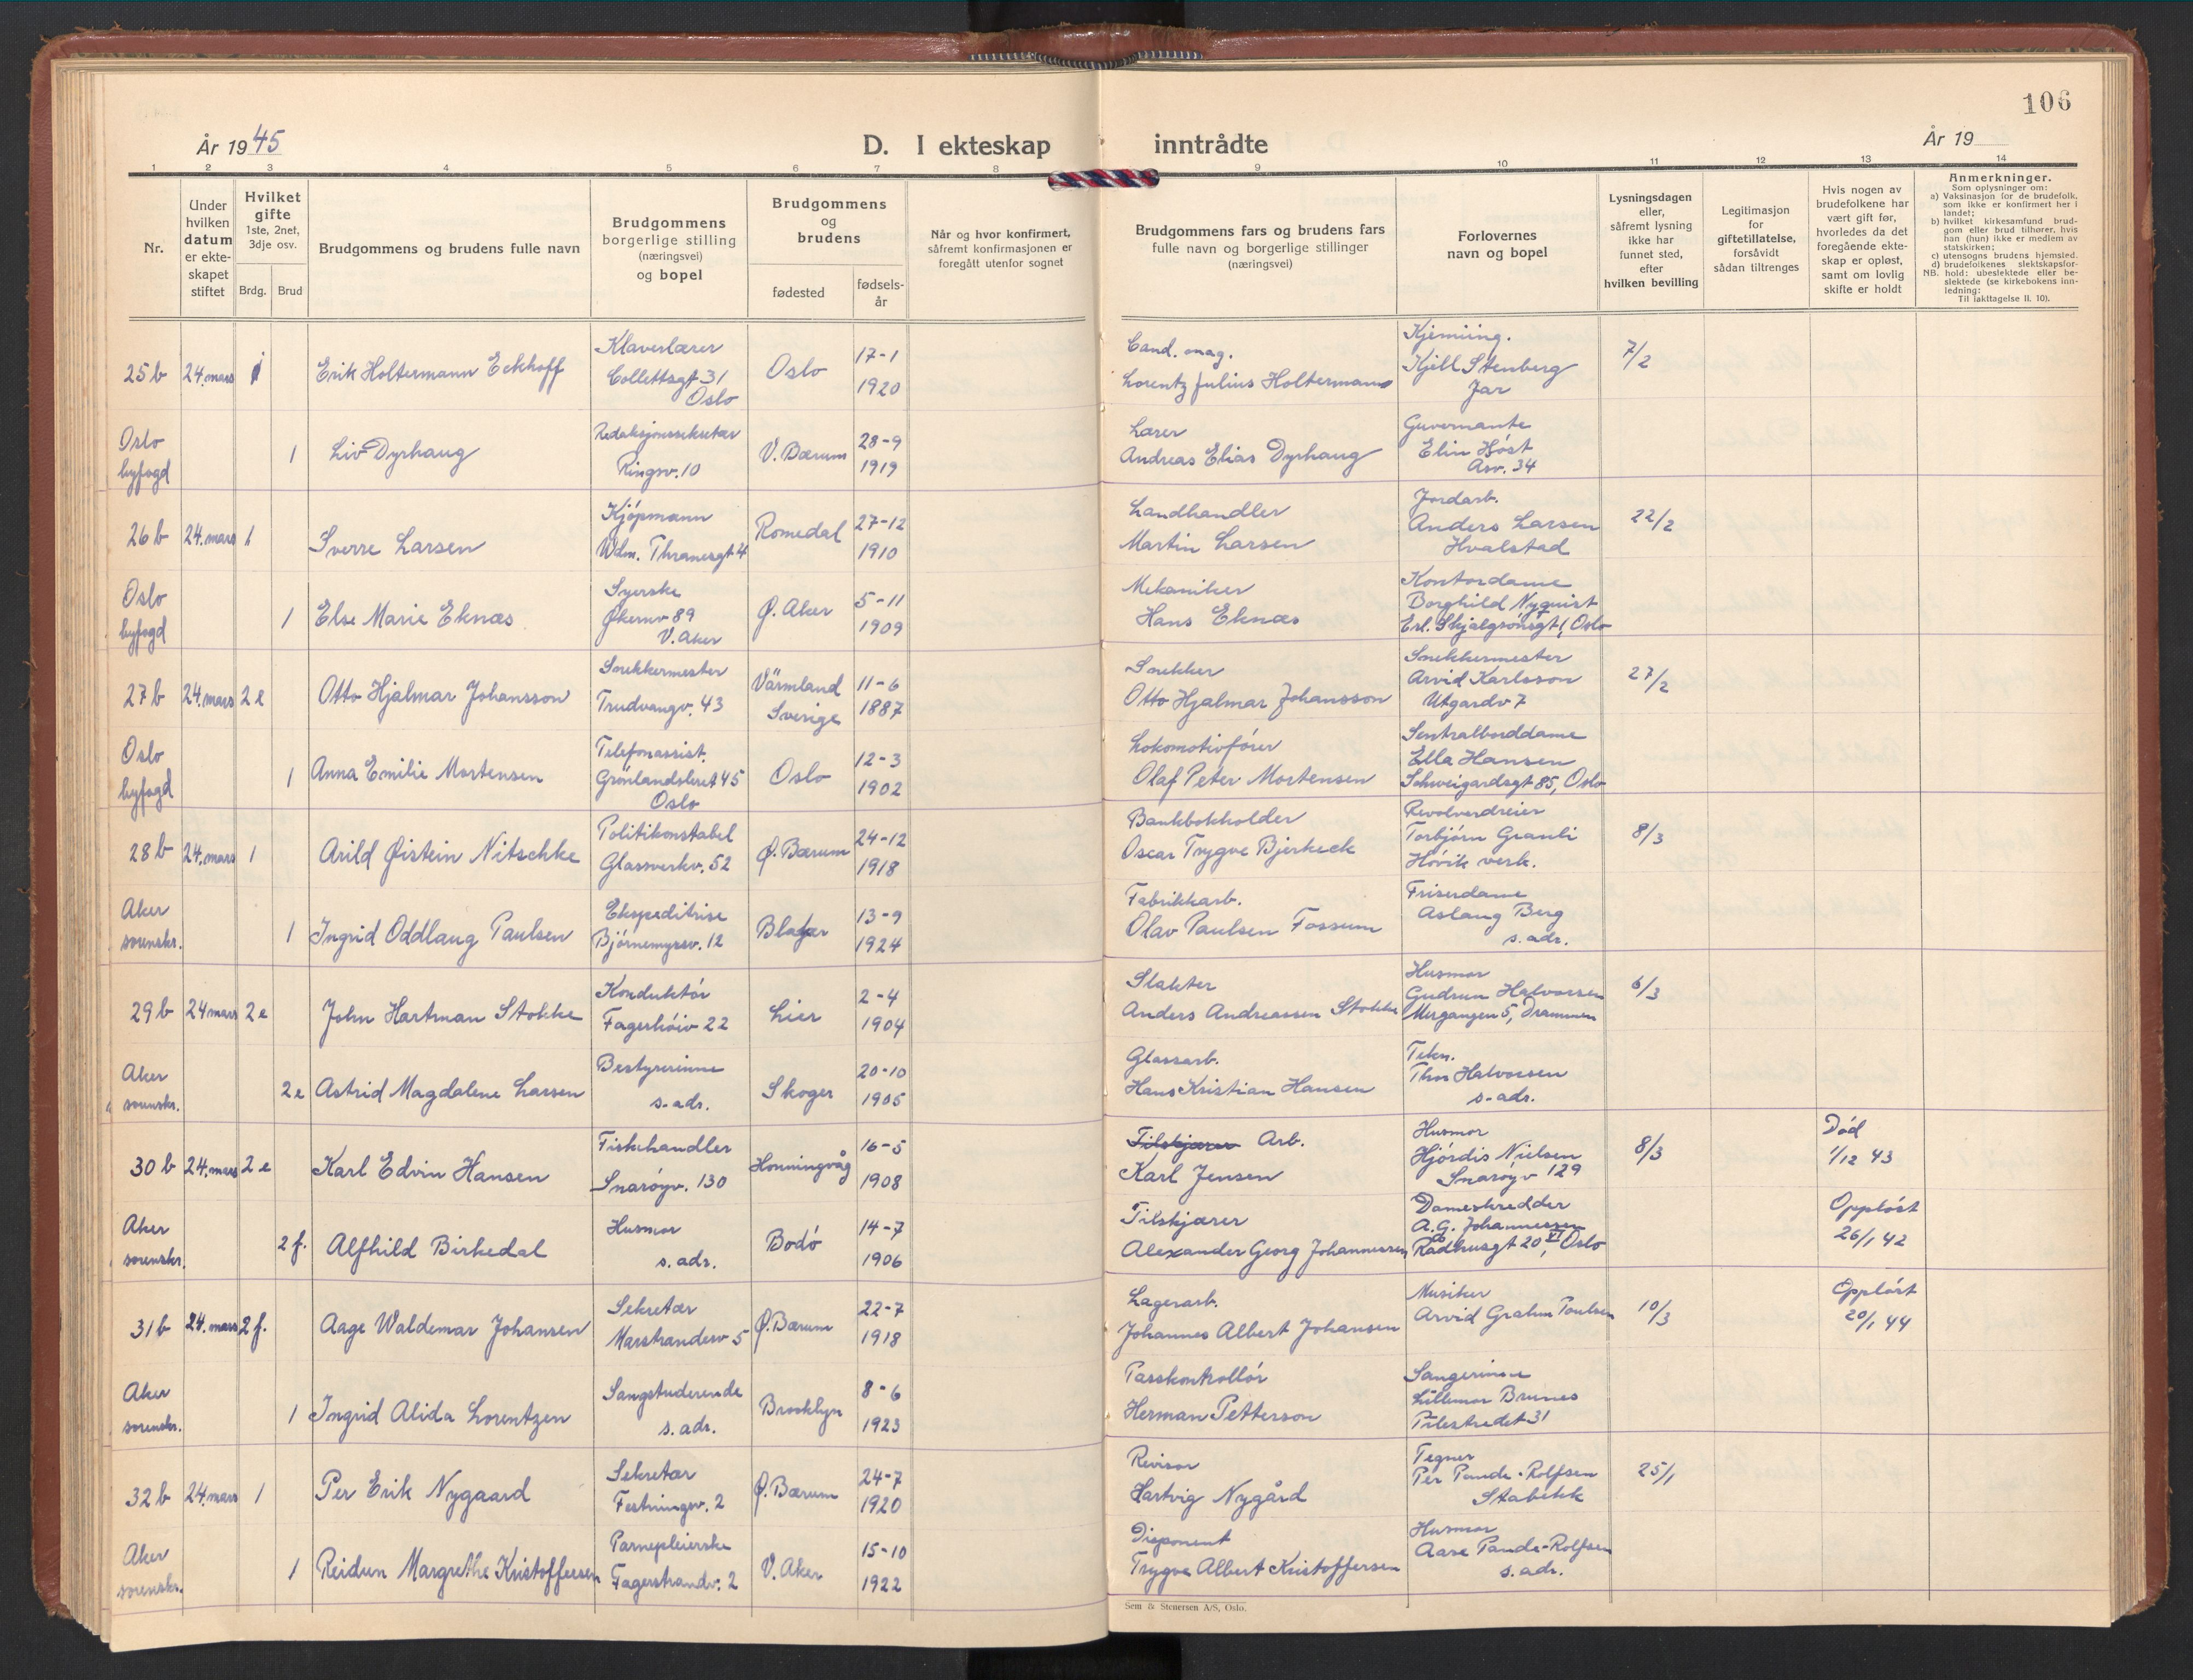 106
År 1945
D. I ekteskap inntrådte
År 19
1 2 3 4 5 6 7 8 9 10 11 12 13 14
Nr.
Under hvilken datum er ekteskapet stiftet
Hvilket gifte 1ste, 2net, 3dje osv.
Brdg. Brud
Brudgommens og brudens fulle navn
Brudgommens borgerlige stilling (næringsvei) og bopel
Brudgommens og brudens
fødested
fødselsår
Når og hvor konfirmert, såfremt konfirmasjonen er foregått utenfor sognet
Brudgommens fars og brudens fars fulle navn og borgerlige stillinger (næringsvei)
Forlovernes navn og bopel
Lysningsdagen eller, såfremt lysning ikke har funnet sted, efter hvilken bevilling
Legitimasjon for giftetillatelse, forsåvidt sådan tiltrenges
Hvis nogen av brudefolkene har vært gift før, hvorledes da det foregående ekteskap er opløst, samt om lovlig skifte er holdt
Anmerkninger.
Som oplysninger om:
a) Vaksinasjon for de brudefolk, som ikke er konfirmert her i landet;
b) hvilket kirkesamfund brudgom eller brud tilhører, hvis han (hun) ikke er medlem av statskirken;
c) utensogns brudens hjemsted.
d) brudefolkenes slektskapsforhold: ubeslektede eller beslektede (se kirkebokens innledning:
NB.
Til iakttagelse II. 10).
25 b 24. mars 1 Erik Holtermann Eckhoff Klaverlærer Collettsgt 31 Oslo Oslo 17-1 1920 Cand. mag. Lorentz Julius Holtermann Kjemiing. Kjell Stenberg Jar 7/2
Oslo byfogd 1 Liv Dyrhaug Redaksjonssekretær Ringsv. 10 V. Bærum 28-9 1919 Lærer Andreas Elias Dyrhaug Guvernante Elin Høst Asv. 34
26 b 24. mars 1 Sverre Larsen Kjøpmann Wilm. Thranesgt 4 Romedal 27-12 1910 Landhandler Martin Larsen Jordarb. Anders Larsen Hvalstad 22/2
Oslo byfogd 1 Else Marie Eknæs Syerske Økernv 89 V. Aker Ø. Aker 5-11 1909 Mekaniker Hans Eknæs Kontordame Borghild Nyquist Erl. Skjalgsønsgt 1, Oslo
27 b 24. mars 2 e Otto Hjalmar Johansson Snekkermester Trudvangv. 43 Värmland Sverige 11-6 1887 Snekker Otto Hjalmar Johansson Snekkermester Arvid Karlsson Utgardv 7 27/2
Oslo byfogd 1 Anna Emilie Mortensen Telefonassist. Grønlandsleret 45 Oslo Oslo 12-3 1902 Lokomotivfører Olaf Peter Mortensen Sentralborddame Ella Hansen Schweigardsgt 85, Oslo
28 b 24. mars 1 Arild Øistein Nitschke Politikonstabel Glassverkv. 52 Ø. Bærum 24-12 1918 Bankbokholder Oscar Trygve Bjerkeck Revolverdreier Torbjørn Granli Høvik verk. 8/3
Aker sorenskr. 1 Ingrid Oddlaug Paulsen Ekspeditrise Bjørnemyrsv. 12 Blaker 13-9 1924 Fabrikkarb. Olav Paulsen Fossum Friserdame Aslaug Berg s. adr.
29 b 24 mars 2 e John Hartman Stokke Konduktør Fagerhøiv 22 Lier 2-4 1904 Slakter Anders Andreassen Stokke Husmor Gudrun Halvorsen Mergangen 5, Drammen 6/3
Aker sorenskr. 2 e Astrid Magdalene Larsen Bestyrerinne s. adr. Skoger 20-10 1905 Glassarb. Hans Kristian Hansen Tekn. Thor Halvorsen s. adr.
30 b 24. mars 2 e Karl Edvin Hansen Fiskehandler Snarøyv. 130 Honningvåg 16-5 1908 Tilskjærer Arb. Karl Jensen Husmor Hjørdis Nielsen Snarøyv 129 8/3 Død 1/12 43
Aker sorenskr. 2 f. Alfhild Birkedal Husmor s. adr. Bodø 14-7 1906 Tilskjærer Alexander Georg Johannessen Dameskredder A. G. Johannessen Rådhusgt 20 VI, Oslo Oppløst 26/1 42
31 b 24. mars 2 f. Aage Waldemar Johansen Sekretær Marstranderv 5 Ø. Bærum 22-7 1918 Lagerarb. Johannes Albert Johansen Musiker Arvid Grahm Paulsen 10/3 Oppløst 20/1 44
Aker sorenskr. 1 Ingrid Alida Lorentzen Sangstuderende s. adr. Brooklyn 8-6 1923 Passkontrollør Herman Petterson Sangerinne Lillemor Brunes Pilestredet 31
32 b 24. mars 1 Per Erik Nygaard Sekretær Festningsv. 2 Ø. Bærum 24-7 1920 Revisor Hartvig Nygård Tegner Per Pande-Rolfsen Stabekk 25/1
Aker sorenskr. 1 Reidun Margrethe Kristoffersen Barnepleierske Fagerstrandv. 2 V. Aker 15-10 1922 Disponent Trygve Albert Kristoffersen Husmor Aase Pande-Rolfsen s. adr.
Sem & Stenersen A/S, Oslo.